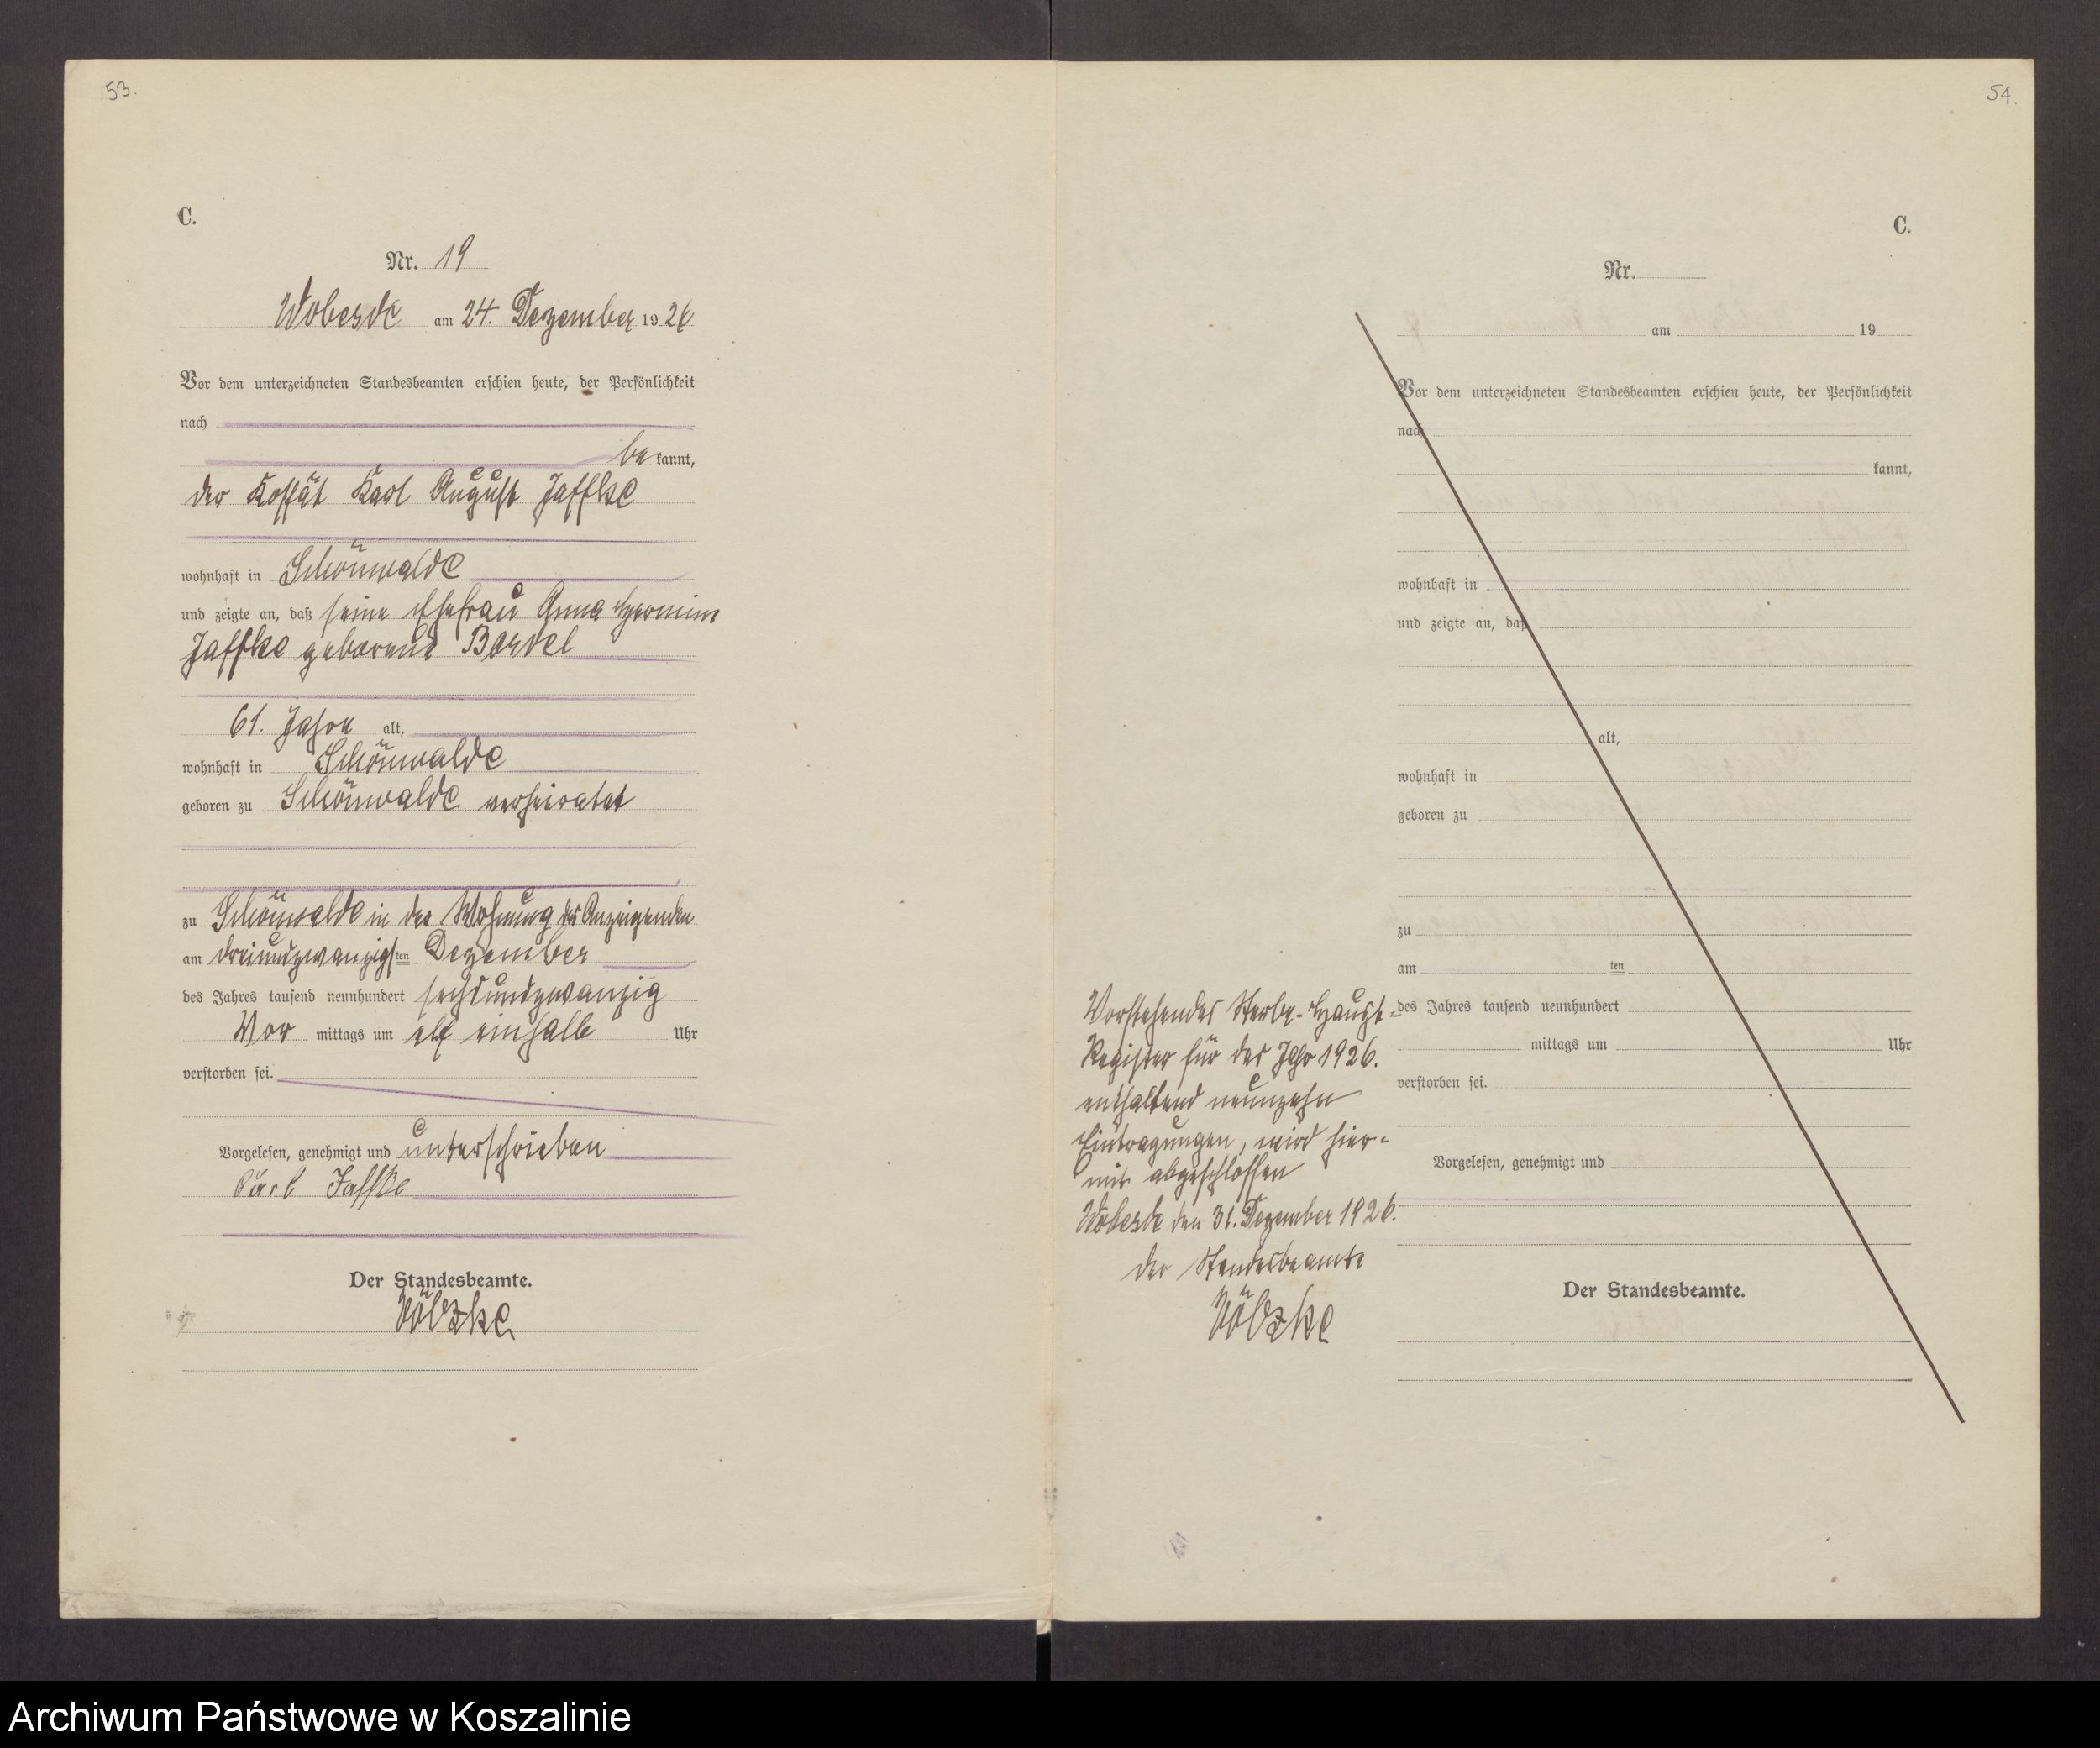 53.
C.
Nr. 19
Wobesde am 24. Dezember 1926
Vor dem unterzeichneten Standesbeamten erschien heute, der Persönlichkeit
nach
be kannt,
der Kossät Karl August Jaffke
wohnhaft in Schönwalde
und zeigte an, daß seine Ehefrau Anna Hermine
Jaffke geborene Bardel
61. Jahre alt,
wohnhaft in Schönwalde
geboren zu Schönwalde verheiratet
zu Schönwalde in der Wohnung des Anzeigenden
am dreiundzwanzigsten Dezember
des Jahres tausend neunhundert sechsundzwanzig
Vor mittags um elf einhalb Uhr
verstorben sei.
Vorgelesen, genehmigt und unterschrieben
Karl Jaffke
Der Standesbeamte.
Völzke
54.
C.
Nr.
am 19
Vor dem unterzeichneten Standesbeamten erschien heute, der Persönlichkeit
nach
kannt,
wohnhaft in
und zeigte an, daß
alt,
wohnhaft in
geboren zu
zu
am ten
des Jahres tausend neunhundert
mittags um Uhr
verstorben sei.
Vorgelesen, genehmigt und
Der Standesbeamte.
Vorstehendes Sterbe-Haupt-
Register für das Jahr 1926.
enthaltend neunzehn
Eintragungen, wird hier-
mit abgeschlossen
Wobesde den 31. Dezember 1926.
der Standesbeamte
Völzke
Archiwum Państwowe w Koszalinie